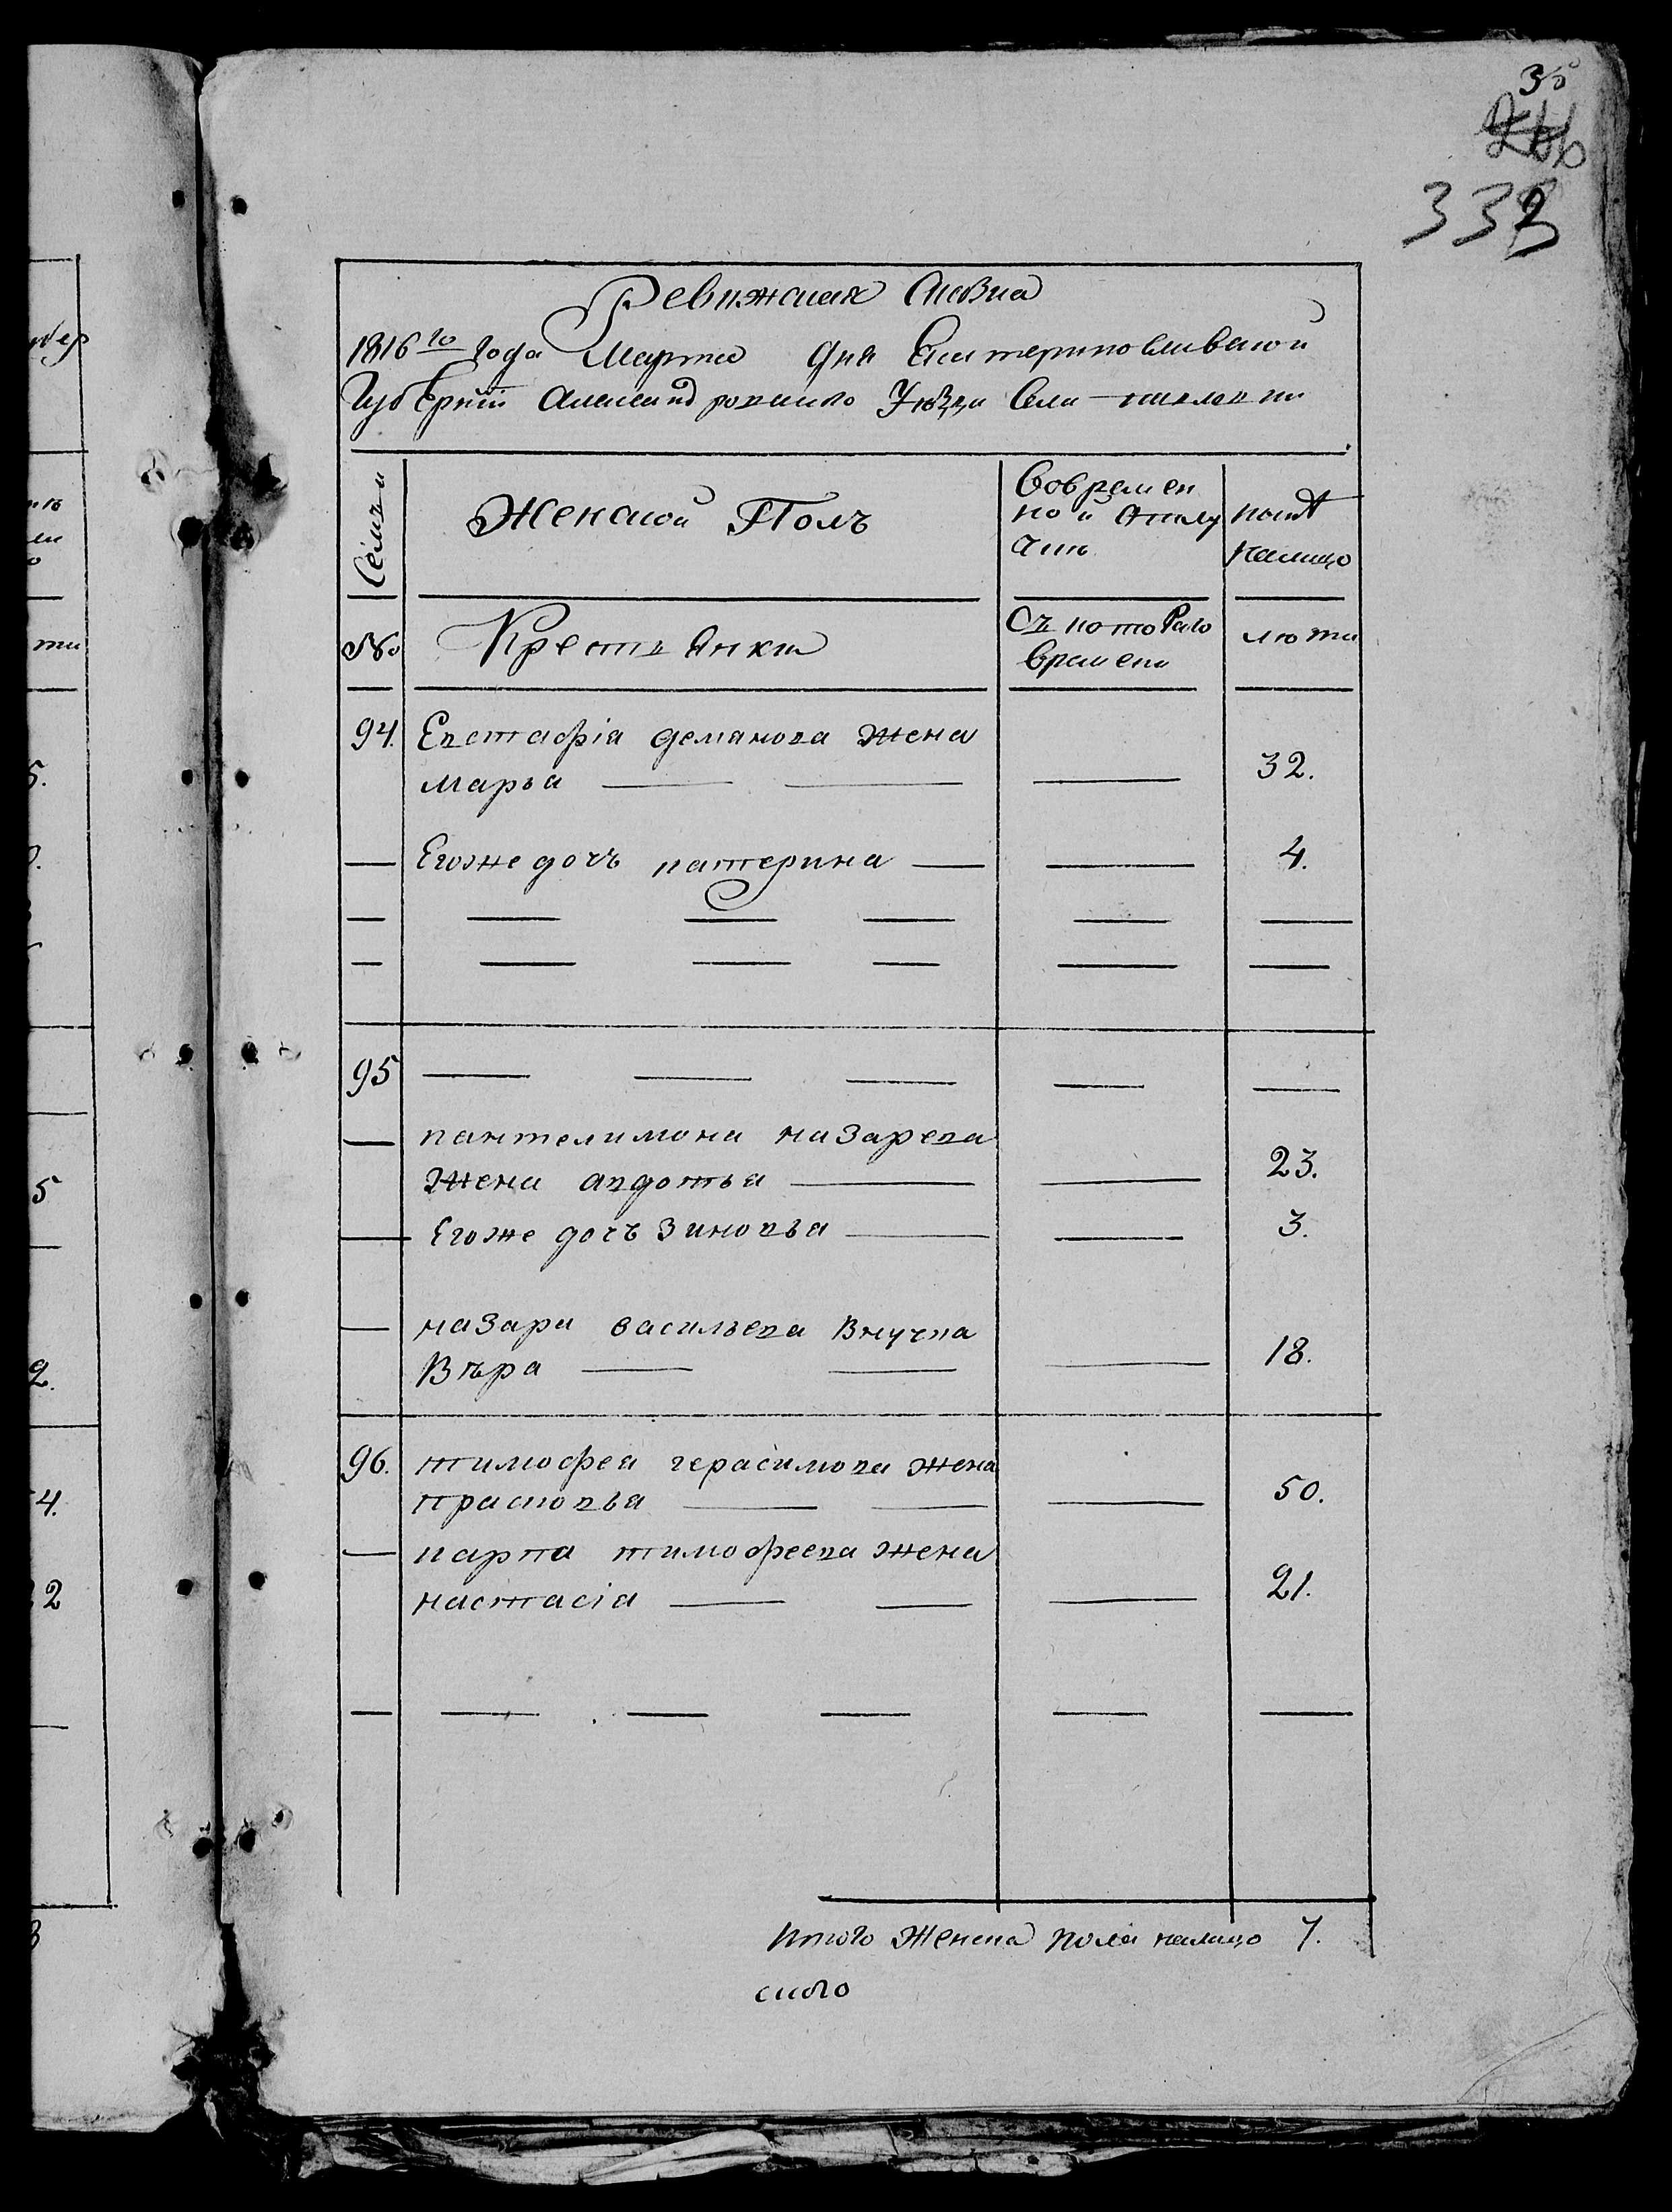 35
332
Ревижская Скaзка
1816го года Марта дня Екатеринославской
Губернии Александровского Уезда Села
Семьи
Женской Полъ
Вовремен
ной отлу
чки
ныне
налицо
№
Крестьянки
Съ которого
времени
лета
94.
Евстафiа демянова жена
марья
32.
Егоже дочъ катерина
4.
95
пантелимона назарева
жена авдотья
23.
Егоже дочъ Зиновья
3.
назара васильева Внучка
Вѣра
18.
96.
тимофея герасимова жена
прасковья
50.
карпа тимофеева жена
настасiа
21.
Итого Женска пола налицо 7.
ского
5.
5
2.
4.
2